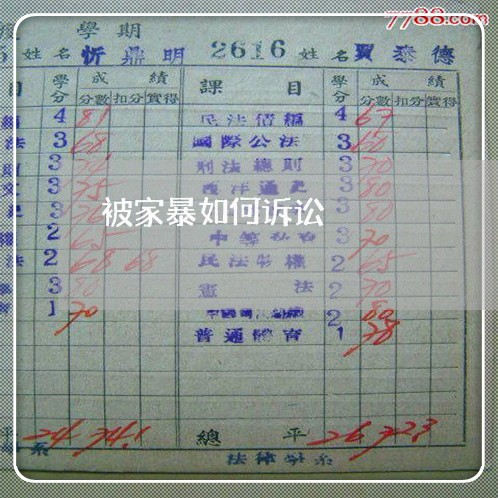 7788.com
學期
姓名 忻鼎明 2616 姓名 賈泰德
目 學分 成績 課目 學分 成績
分數 扣分 實得 分數 扣分 實得
4 81 民法債編 4 67
法 3 68 國際公法 3 60
3 刑法總則 3 70
3 75 西洋通史 3 80
3 3 80
被家暴如何诉讼
2 65 3 70
法 2 68 68 民法物權 2 65
3 80 憲法 2 70
1 70 2 80
普通體育 1 78
平 24 74.1 總平 26 72.3
系 法律學系